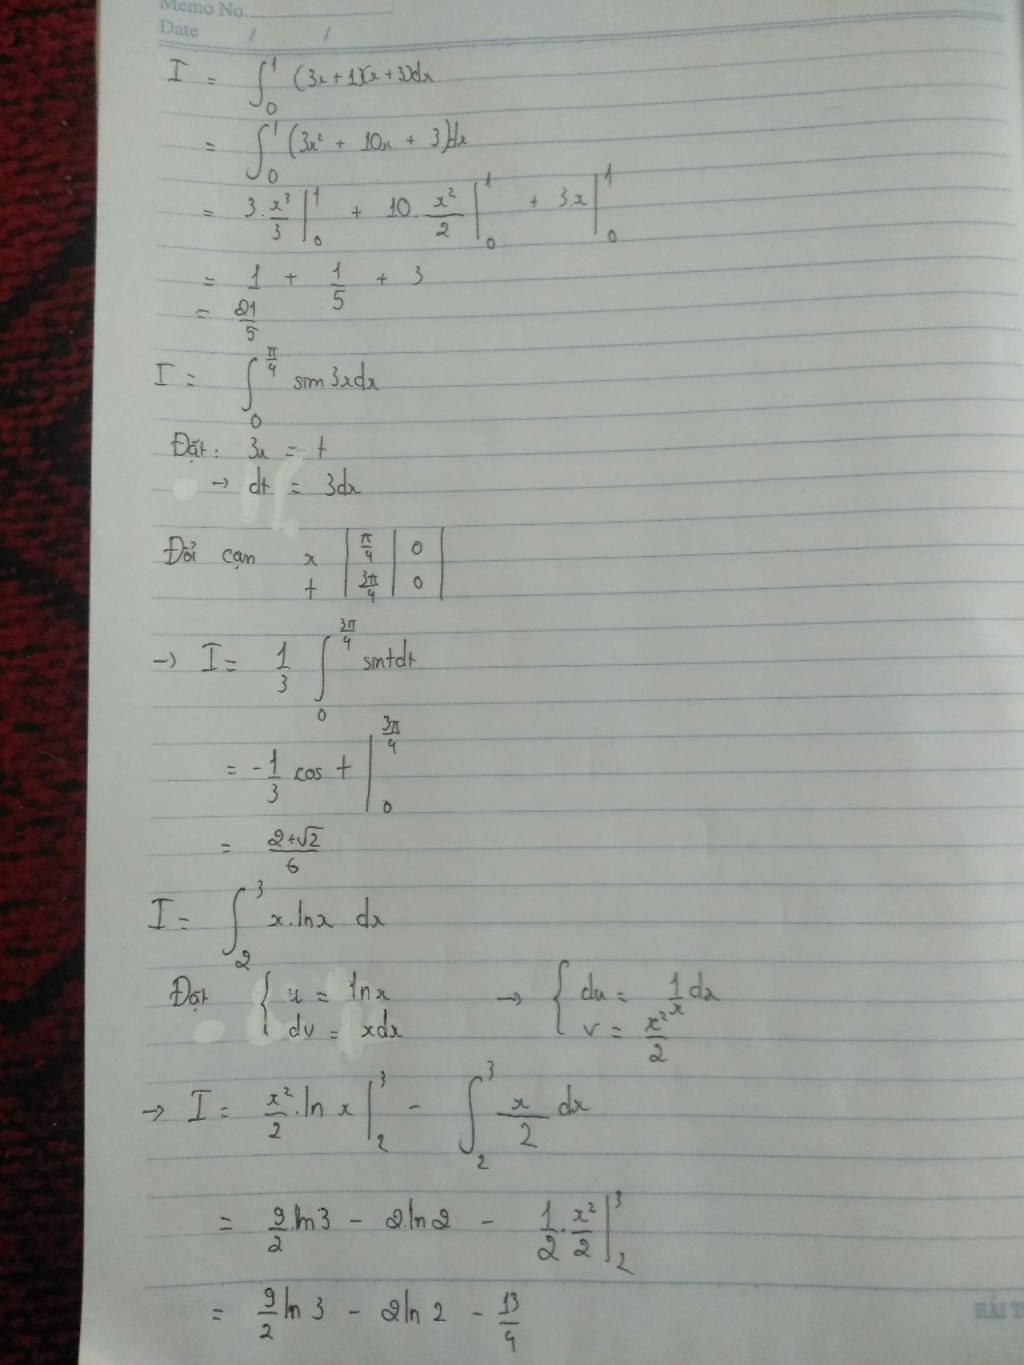 Memo No.
Date / /
I = ∫₀¹ (3x + 1)(x + 3)dx
= ∫₀¹ (3x² + 10x + 3)dx
= 3.x³/3 |₀¹ + 10.x²/2 |₀¹ + 3.x |₀¹
= 1 + 1/5 + 3
= 21/5
I = ∫₀^(π/4) sin3xdx
Đặt: 3x = t
→ dt = 3dx
Đổi cạn x | π/4 | 0 |
t | 3π/4 | 0 |
→ I = 1/3 ∫₀^(3π/4) sintdt
= -1/3 cos t |₀^(3π/4)
= (2+√2)/6
I = ∫₂³ x.lnx dx
Đặt { u = lnx → { du = 1/x dx
dv = xdx v = x²/2
→ I = x²/2 .ln x |₂³ - ∫₂³ x/2 dx
= 9/2 ln3 - 2.ln2 - 1/2 . x²/2 |₂³
= 9/2 ln 3 - 2ln 2 - 13/4
HẢI T